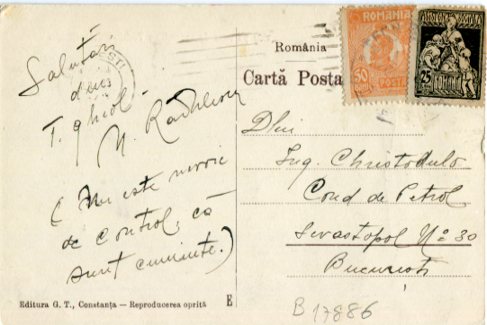 Salutări
din
T. Ghiol
N. Rădulescu
( Nu este nevoie
de control, că
sunt cuminte. )
România
Cartă Posta
ROMANIA
50
BANI
POSTA
25
Dlui
Ing. Christodulo
Cond de Petrol
Sevastopol No 30
București
Editura G. T., Constanța — Reproducerea oprită
E
B 17886